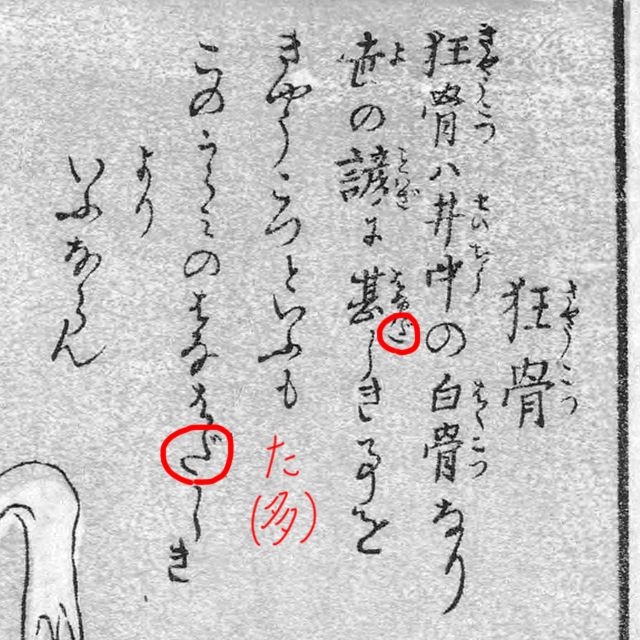 きやうこつ
狂骨
きやうこつ せいちう はくこつ
狂骨ハ井中の白骨なり
よ ことわざ はなはだ
世の諺に甚しき事を
きやうこつといふも
このうらみのはなはだしき
より
いふならん
た
(多)